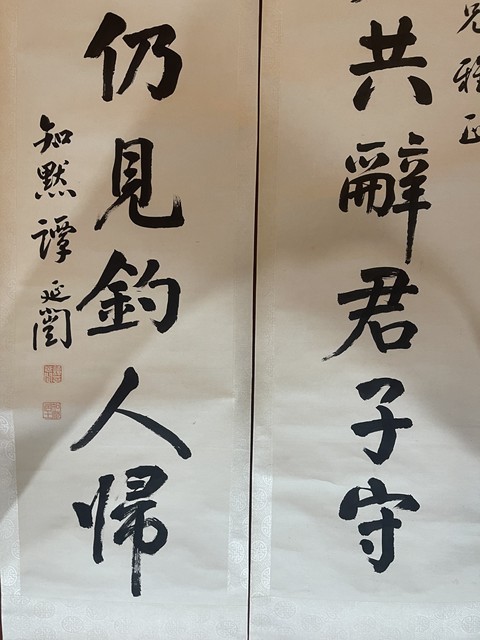 兄雅正
共辭君子守
仍見釣人帰
知默譚延闓